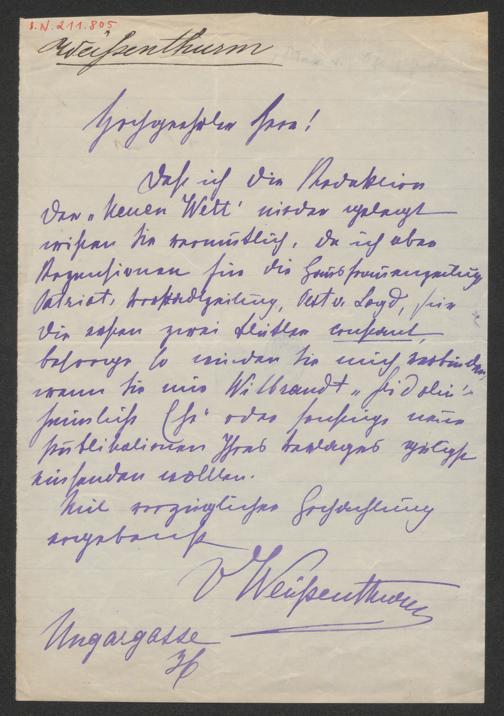 I.N. 211.805
Weißenthurm
Hochgeehrter Herr!
Daß ich die Redaktion
der „Neuen Welt" nieder gelegt
wißen Sie vermutlich, da ich aber
Rezensionen für die Hausfrauenzeitung
Patriot, Vorstadtzeitung, Ost u. Loyd, für
die ersten zwei Blätter constant,
besorge so würden Sie mich verbinden
wenn Sie mir Wilbrandt „Fridolin's
heimliche Ehe" oder sonstige neue
Publikationen Ihres Verlages gütigst
einsenden wollten.
Mit vorzüglicher Hochachtung
ergebenst
V Weißenthurn
Ungargasse